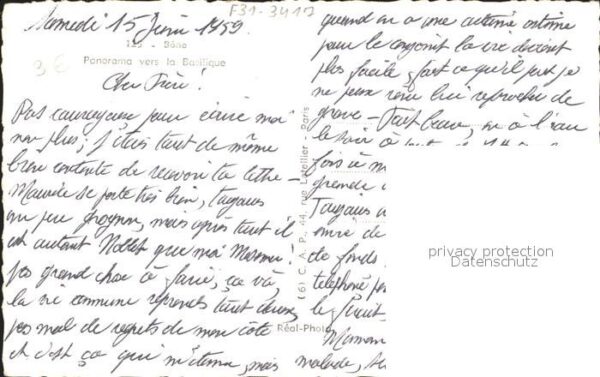 F31-3417
Samedi 15 Juin 1959.
125 - Bône
Panorama vers la Basilique
3€
Cher Frère!
Pas courageuse pour écrire moi
non plus; j'étais tout de même
bien contente de recevoir ta lettre -
Maurice se porte très bien, toujours
un peu grognon, mais après tout il
est autant que moi
pas grand chose à faire, ça va,
la vie commune reprends tout doux,
pas mal de regrets de mon côté
et c'est ça qui m'étonne, mais
quand on a une certaine estime
pour le conjoint la vie devient
plus facile, fait ce qu'il peut je
ne peux rien lui reprocher de
grave - Fait beau, on à l'eau
le soir à
fois à m
grande
Toujours
de fonds
téléphoné
Maman
malade,
(6) C. A. P., 44, rue Letellier - Paris
Réal-Photo
privacy protection
Datenschutz